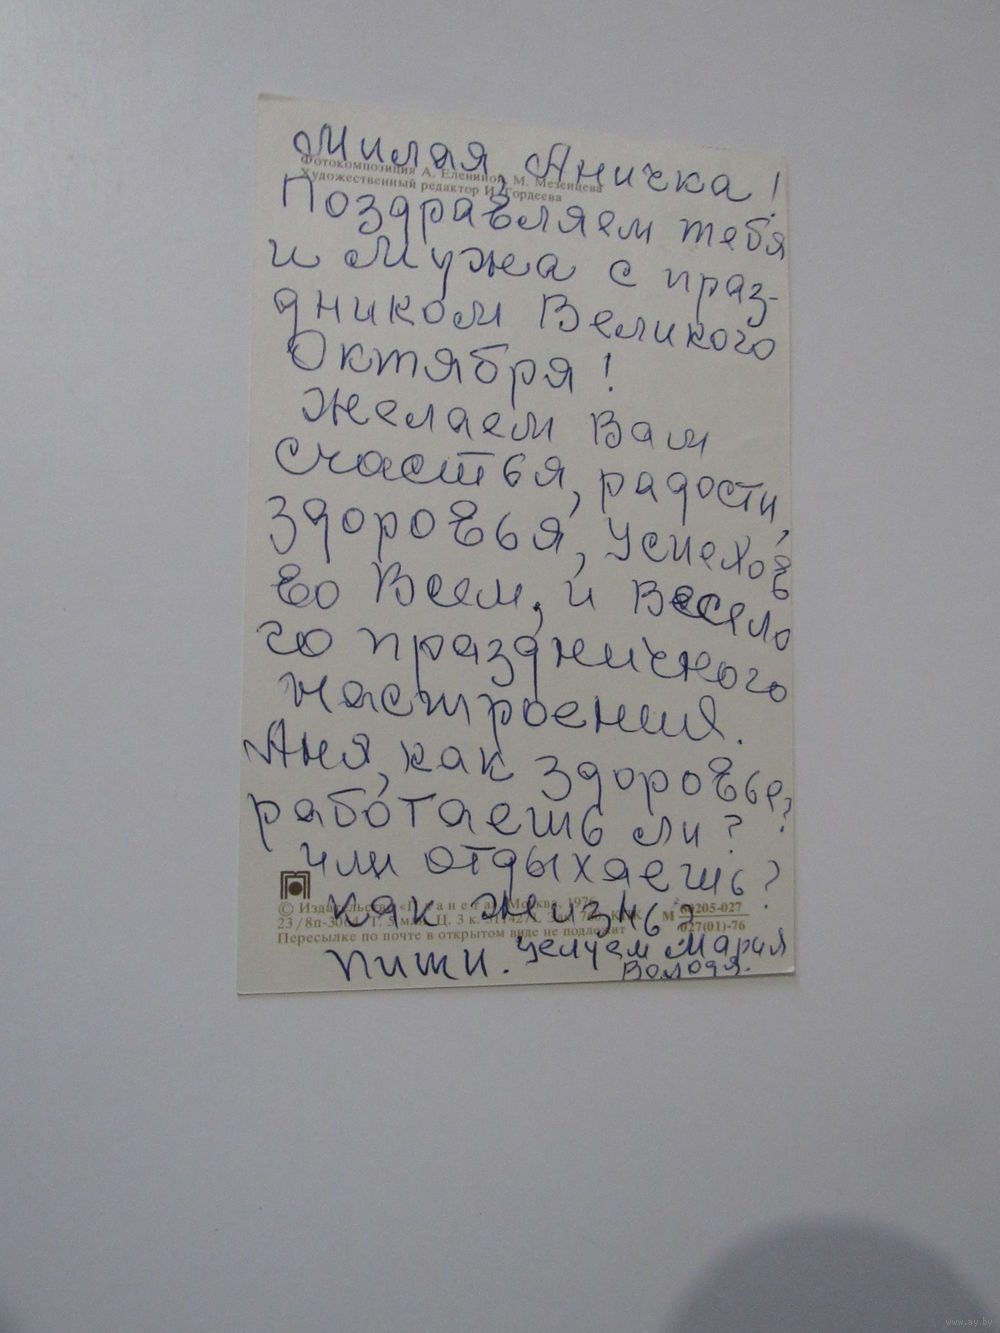 Милая, Аничка!
Фотокомпозиция А. Еленина, М. Мезенцева
Художественный редактор И. Гордеева
Поздравляем тебя
и Мужа с праз-
дником Великого
Октября!
Желаем Вам
Счастья, радости,
Здоровья, Успехов
во Всем, и Весело
го праздничного
настроения.
Аня, как здоровье?
работаешь ли?
или отдыхаешь?
как жизнь?
© Издательство «Планета», Москва, 197
23/8п-30 Т. 5 млн. Ц. 3 к.
М 60205-027
027(01)-76
Пересылке по почте в открытом виде не подлежит
пиши. Целуем Мария
Володя.
www.ay.by